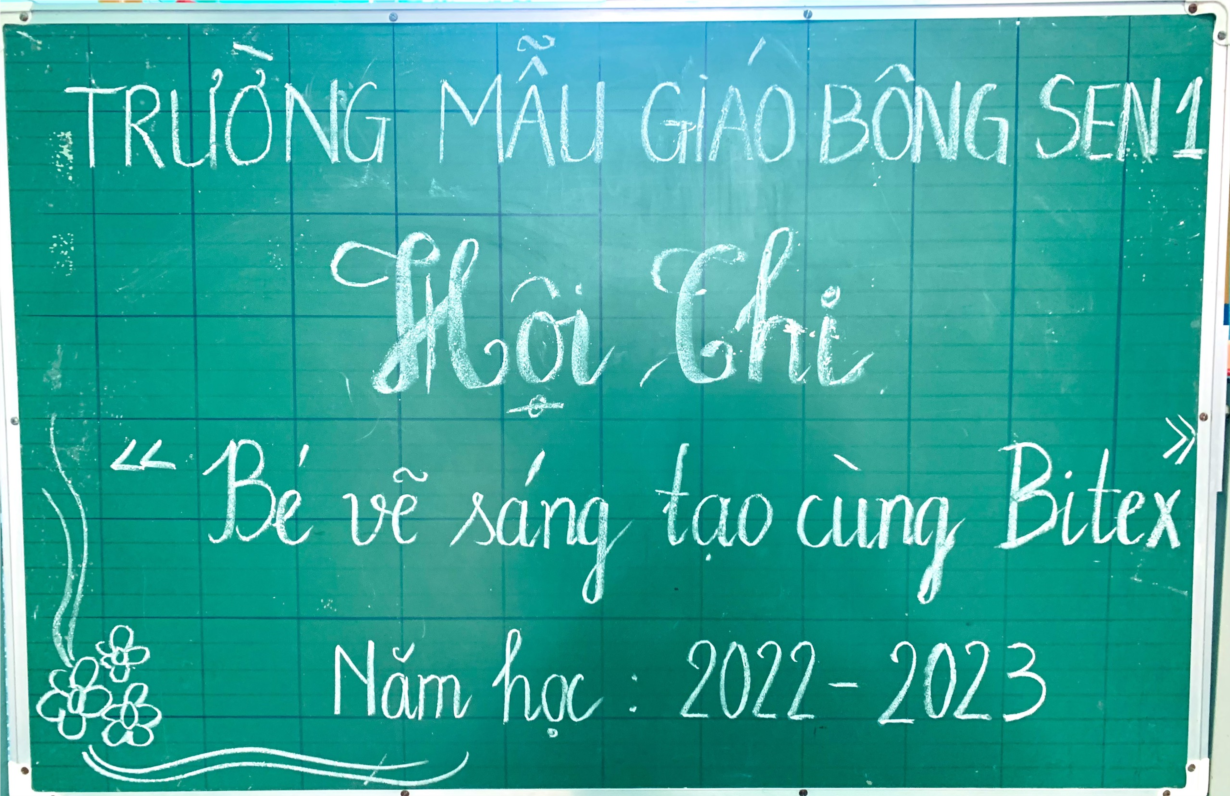 TRƯỜNG MẪU GIÁO BÔNG SEN 1
Hội Thi
“ Bé vẽ sáng tạo cùng Bitex ”
Năm học : 2022 - 2023